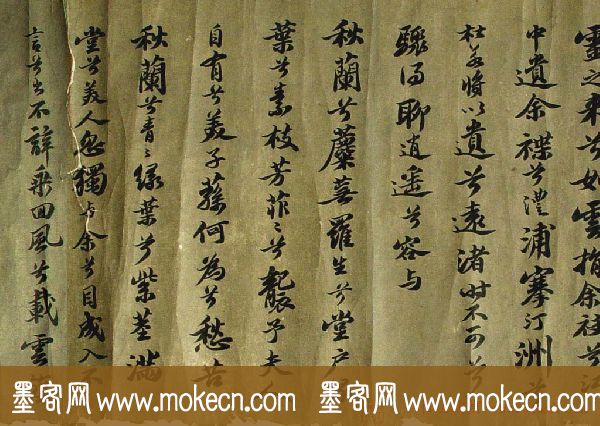 靈之来兮如雲捐余袂兮
中遺余褋兮澧浦搴汀洲兮
杜若將以遺兮遠渚時不可兮
驟得聊逍遥兮容与
秋蘭兮蘪蕪羅生兮堂户
葉兮素枝芳菲〻兮襲予夫
自有兮美子蓀何為兮愁苦
秋蘭兮青〻緑葉兮紫莖滿
堂兮美人忽獨与余兮目成入不
言兮出不辭乗回風兮載雲
墨客网 www.mokecn.com 墨客网 www.mokecn.com